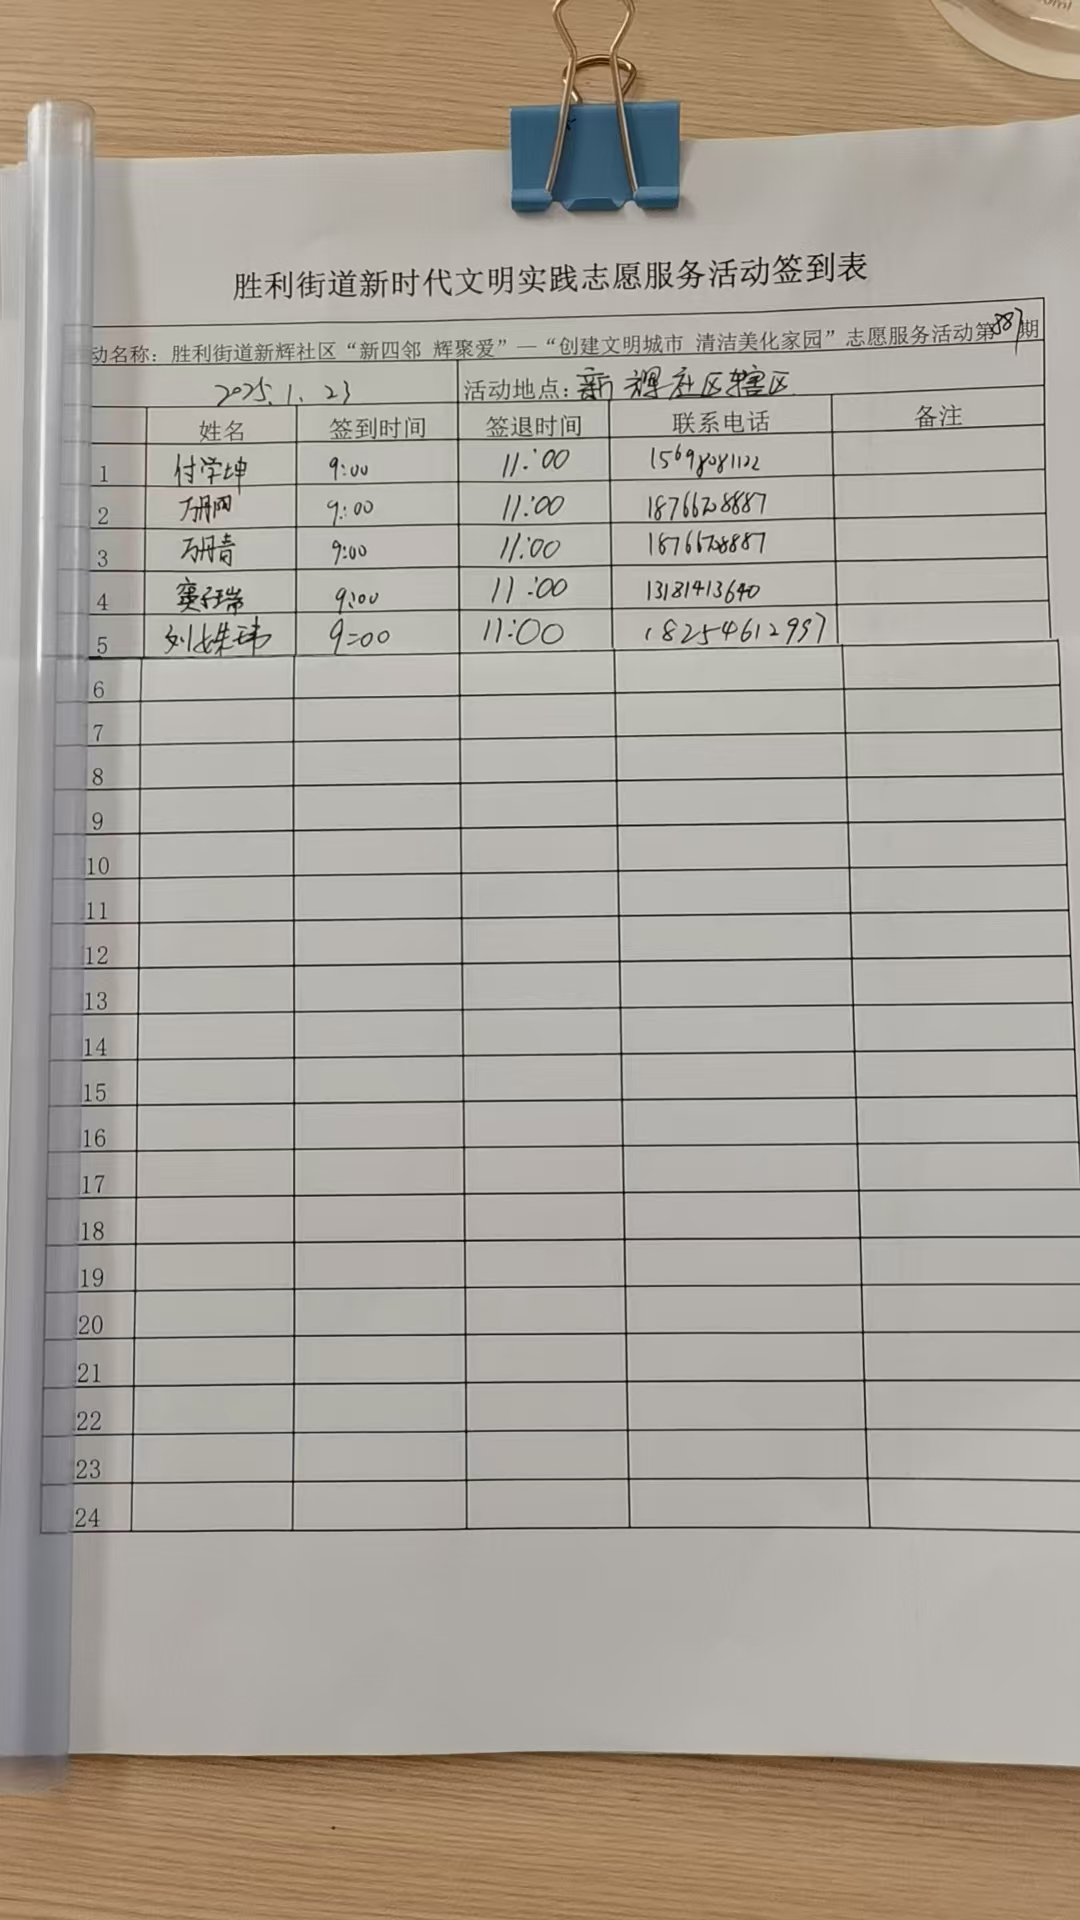 胜利街道新时代文明实践志愿服务活动签到表
动名称：胜利街道新辉社区“新四邻 辉聚爱”—“创建文明城市 清洁美化家园”志愿服务活动第887期
2025.1.23 活动地点：新辉社区辖区
姓名 签到时间 签退时间 联系电话 备注
1 付学坤 9:00 11:00 15698081122
2 万丹 9:00 11:00 18766708887
3 万丹青 9:00 11:00 18766708887
4 窦子瑞 9:00 11:00 13181413640
5 刘姝玮 9:00 11:00 18254612997
6
7
8
9
10
11
12
13
14
15
16
17
18
19
20
21
22
23
24